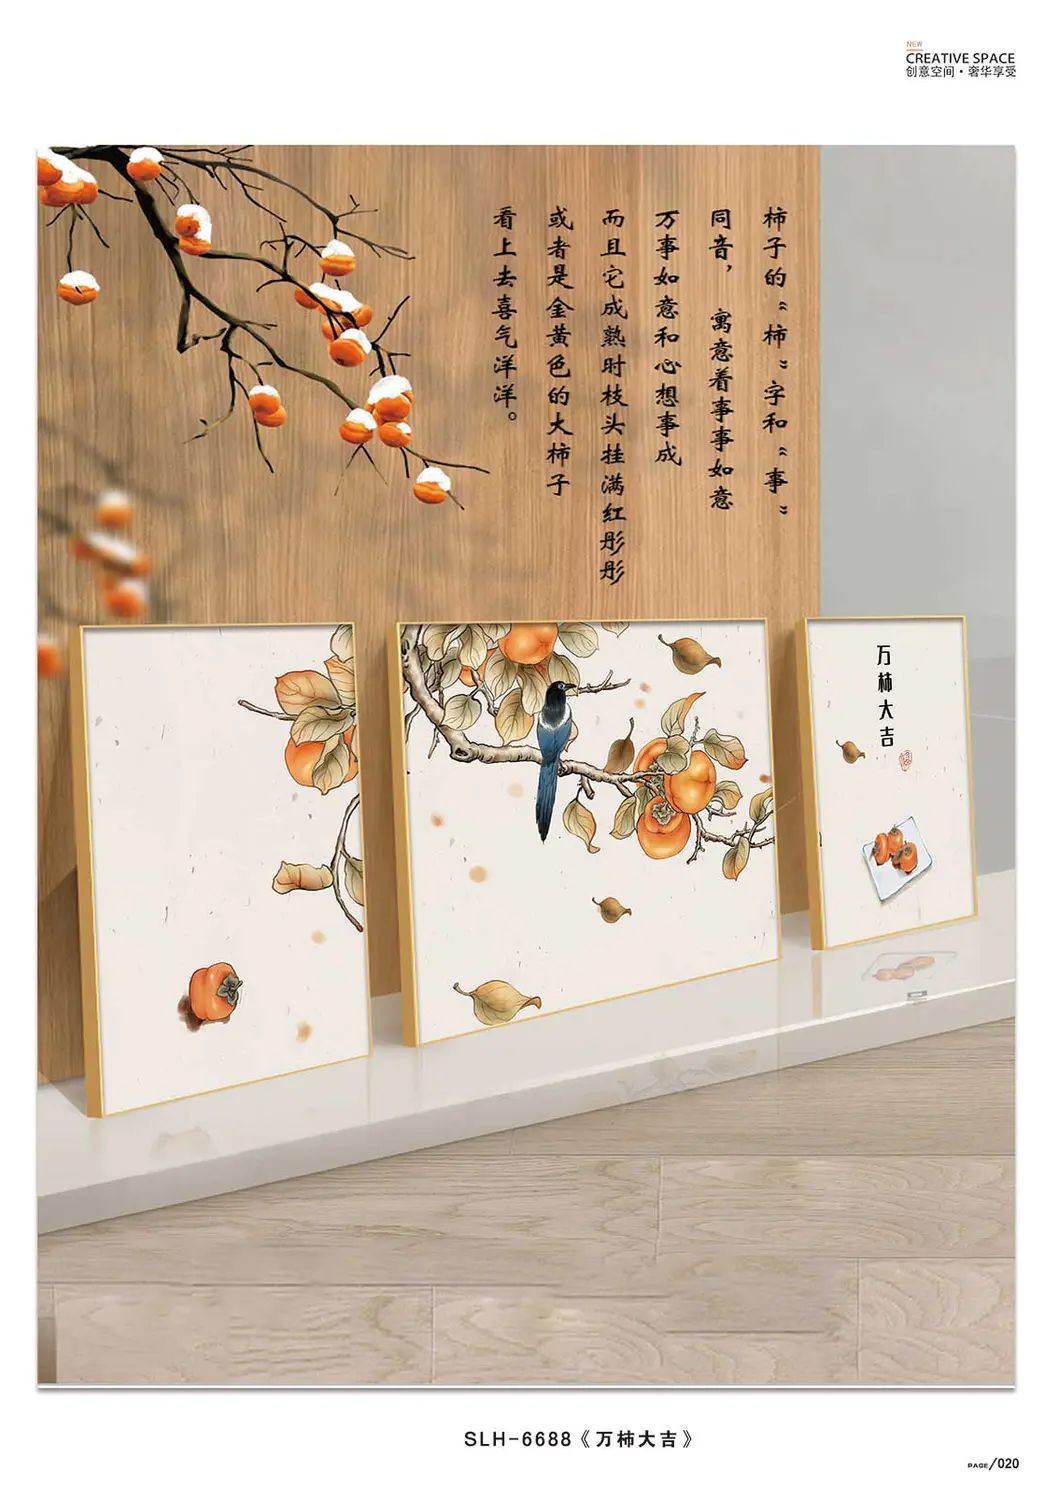 NEW
CREATIVE SPACE
创意空间·奢华享受
柿子的“柿”字和“事”
同音，寓意着事事如意
万事如意和心想事成
而且它成熟时枝头挂满红彤彤
或者是金黄色的大柿子
看上去喜气洋洋。
万柿大吉
SLH-6688《万柿大吉》
PAGE/020